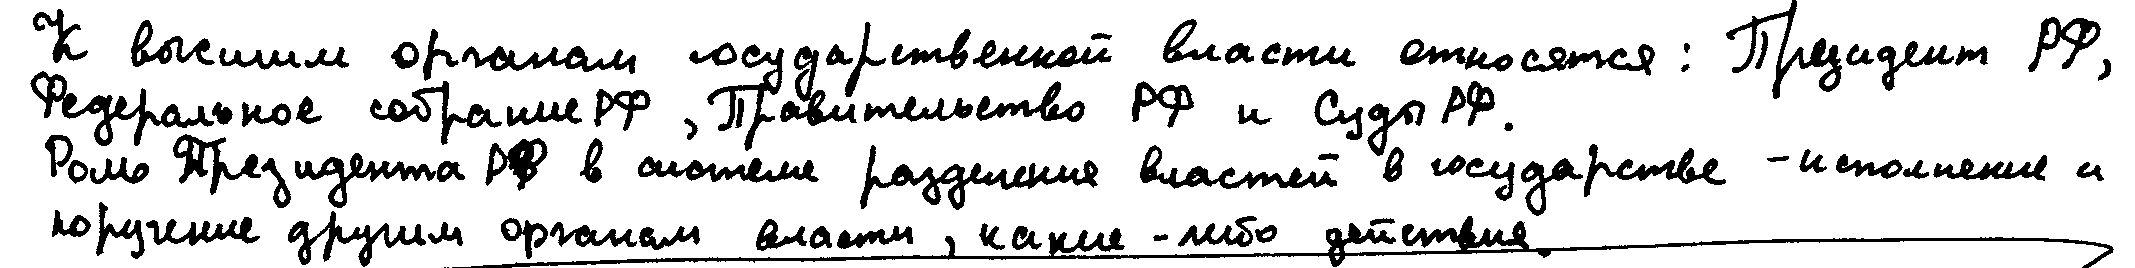 К высшим органам государственной власти относятся: Президент РФ,
Федеральное собрание РФ, Правительство РФ и Суды РФ.
Роль Президента РФ в системе разделения властей в государстве - исполнение и
поручение другим органам власти, какие-либо действия.